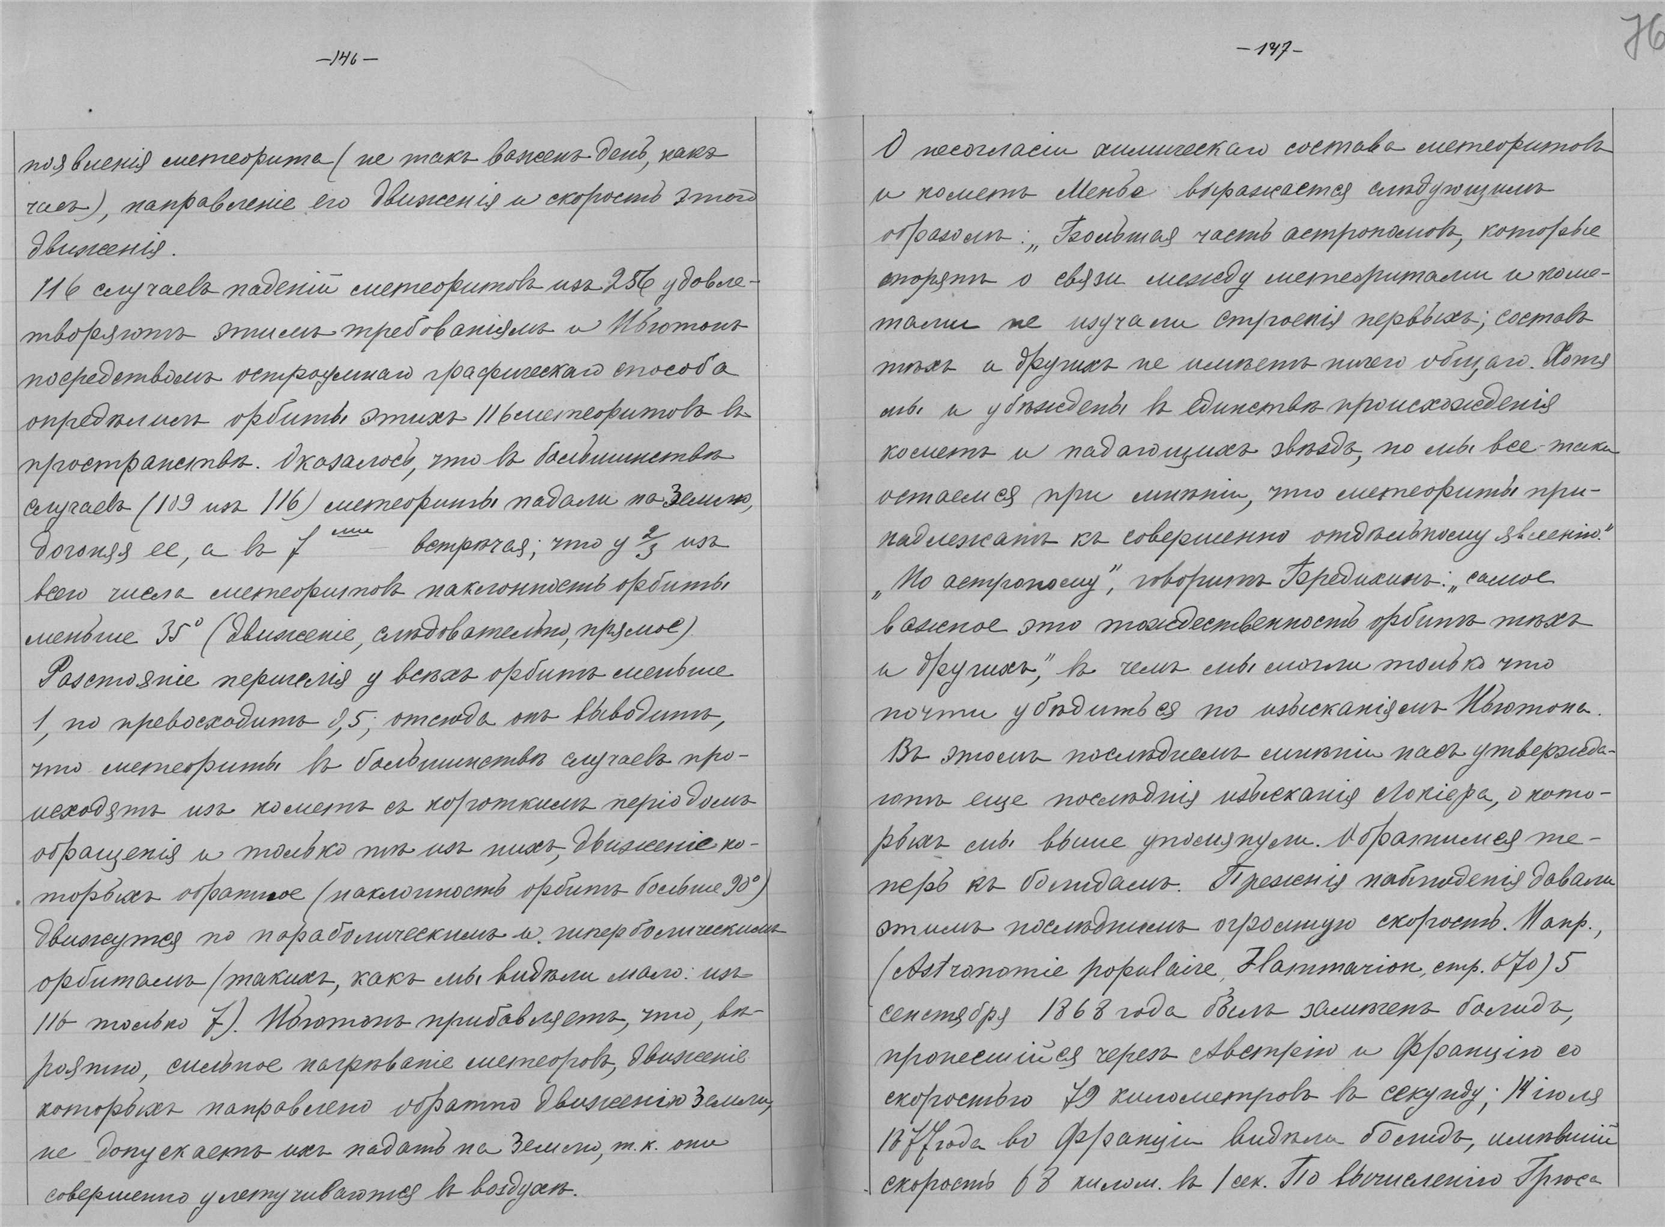 -146-
появленія метеорита (не такъ важенъ день, какъ
часъ), направленіе его движенія и скорость этого
движенія.
116 случаевъ паденій метеоритовъ изъ 256 удовле-
творяютъ этимъ требованіямъ и Ньютонъ
посредствомъ остроумнаго графическаго способа
опредѣлилъ орбиты этихъ 116 метеоритовъ въ
пространствѣ. Оказалось, что въ большинствѣ
случаевъ (109 изъ 116) метеориты падали на Землю,
догоняя ее, а въ 7 ми встрѣчая; что у 2/3 изъ
всего числа метеоритовъ наклонность орбиты
меньше 35° (движеніе, слѣдовательно, прямое)
Разстояніе перигелія у всѣхъ орбитъ меньше
1, но превосходитъ 0,5; отсюда онъ выводитъ,
что метеориты въ большинствѣ случаевъ про-
исходятъ изъ кометъ съ короткимъ періодомъ
обращенія и только тѣ изъ нихъ, движеніе ко-
торыхъ обратное (наклонность орбитъ больше 90°)
движутся по параболическимъ и гиперболическимъ
орбитамъ (такихъ, какъ мы видѣли мало: изъ
116 только 7). Ньютонъ прибавляетъ, что, вѣ-
роятно, сильное нагрѣваніе метеоровъ, движеніе
которыхъ направлено обратно движенію Земли,
не допускаетъ ихъ падать на Землю, т.к. они
совершенно улетучиваются въ воздухѣ.
-147-
76
О несогласіи химическаго состава метеоритовъ
и кометъ Менье выражается слѣдующимъ
образомъ: „Большая часть астрономовъ, которые
спорятъ о связи между метеоритами и коме-
тами не изучали строенія первыхъ; составъ
тѣхъ и другихъ не имѣетъ ничего общаго. Хотя
мы и убѣждены въ единствѣ происхожденія
кометъ и падающихъ звѣздъ, но мы все-таки
остаемся при мнѣніи, что метеориты при-
надлежатъ къ совершенно отдѣльному явленію."
„Но астроному", говоритъ Бредихинъ: „самое
важное это тождественность орбитъ тѣхъ
и другихъ", въ чемъ мы могли только что
почти убѣдиться по изысканіямъ Ньютона.
Въ этомъ послѣднемъ мнѣніи насъ утвержда-
ютъ еще послѣднія изысканія Локіера, о кото-
рыхъ мы выше упомянули. Обратимся те-
перь къ болидамъ. Прежнія наблюденія давали
этимъ послѣднимъ огромную скорость. Напр.,
(Astronomie populaire, Flammarion, стр. 670) 5
сентября 1868 года былъ замѣченъ болидъ,
пронесшійся черезъ Австрію и Францію со
скоростью 79 километровъ въ секунду; 14 іюля
1877 года во Франціи видѣли болидъ, имѣвшій
скорость 68 килом. въ 1 сек. По вычисленію Грюса